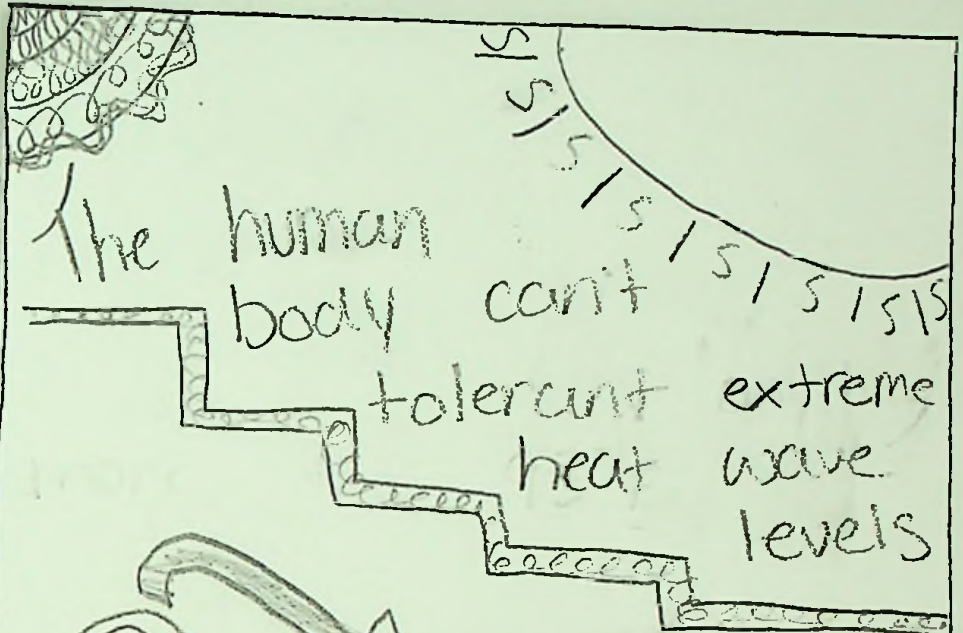 The human
body can't
tolerant extreme
heat wave
levels